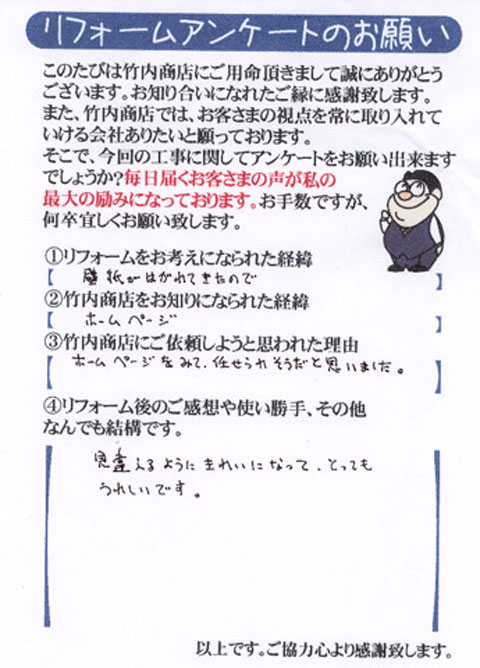 リフォームアンケートのお願い
このたびは竹内商店にご用命頂きまして誠にありがとう
ございます。お知り合いになれたご縁に感謝致します。
また、竹内商店では、お客さまの視点を常に取り入れて
いける会社ありたいと願っております。
そこで、今回の工事に関してアンケートをお願い出来ます
でしょうか?毎日届くお客さまの声が私の
最大の励みになっております。お手数ですが、
何卒宜しくお願い致します。
①リフォームをお考えになられた経緯
【 壁紙がはがれてきたので 】
②竹内商店をお知りになられた経緯
【 ホームページ 】
③竹内商店にご依頼しようと思われた理由
ホームページをみて、任せられそうだと思いました。
④リフォーム後のご感想や使い勝手、その他
なんでも結構です。
見違えるようにきれいになって、とっても
うれしいです。
以上です。ご協力心より感謝致します。